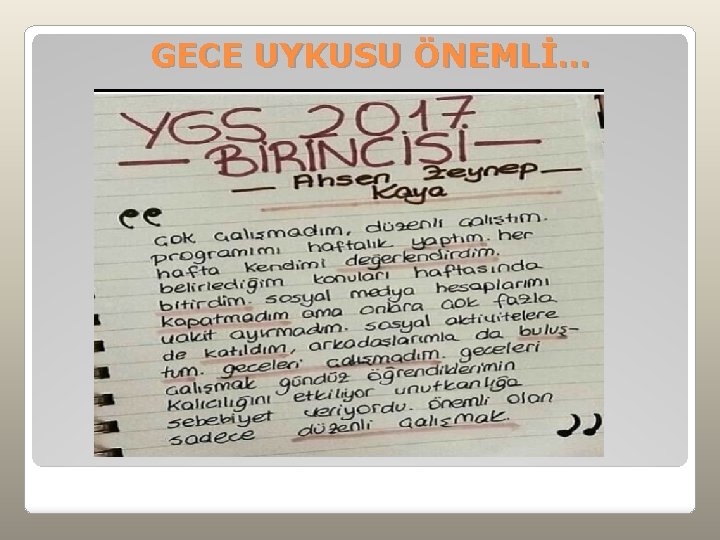 GECE UYKUSU ÖNEMLİ...
YGS 2017
— BİRİNCİSİ —
— Ahsen Zeynep —
Kaya
"
Çok çalışmadım, düzenli çalıştım.
programımı haftalık yaptım. her
hafta kendimi değerlendirdim.
belirlediğim konuları haftasında
bitirdim. sosyal medya hesaplarımı
kapatmadım ama onlara çok fazla
vakit ayırmadım. sosyal aktivitelere
de katıldım, arkadaşlarımla da buluş-
tum. geceleri çalışmadım. geceleri
çalışmak gündüz öğrendiklerimin
kalıcılığını etkiliyor unutkanlığa
sebebiyet veriyordu. önemli olan
sadece düzenli çalışmak. "